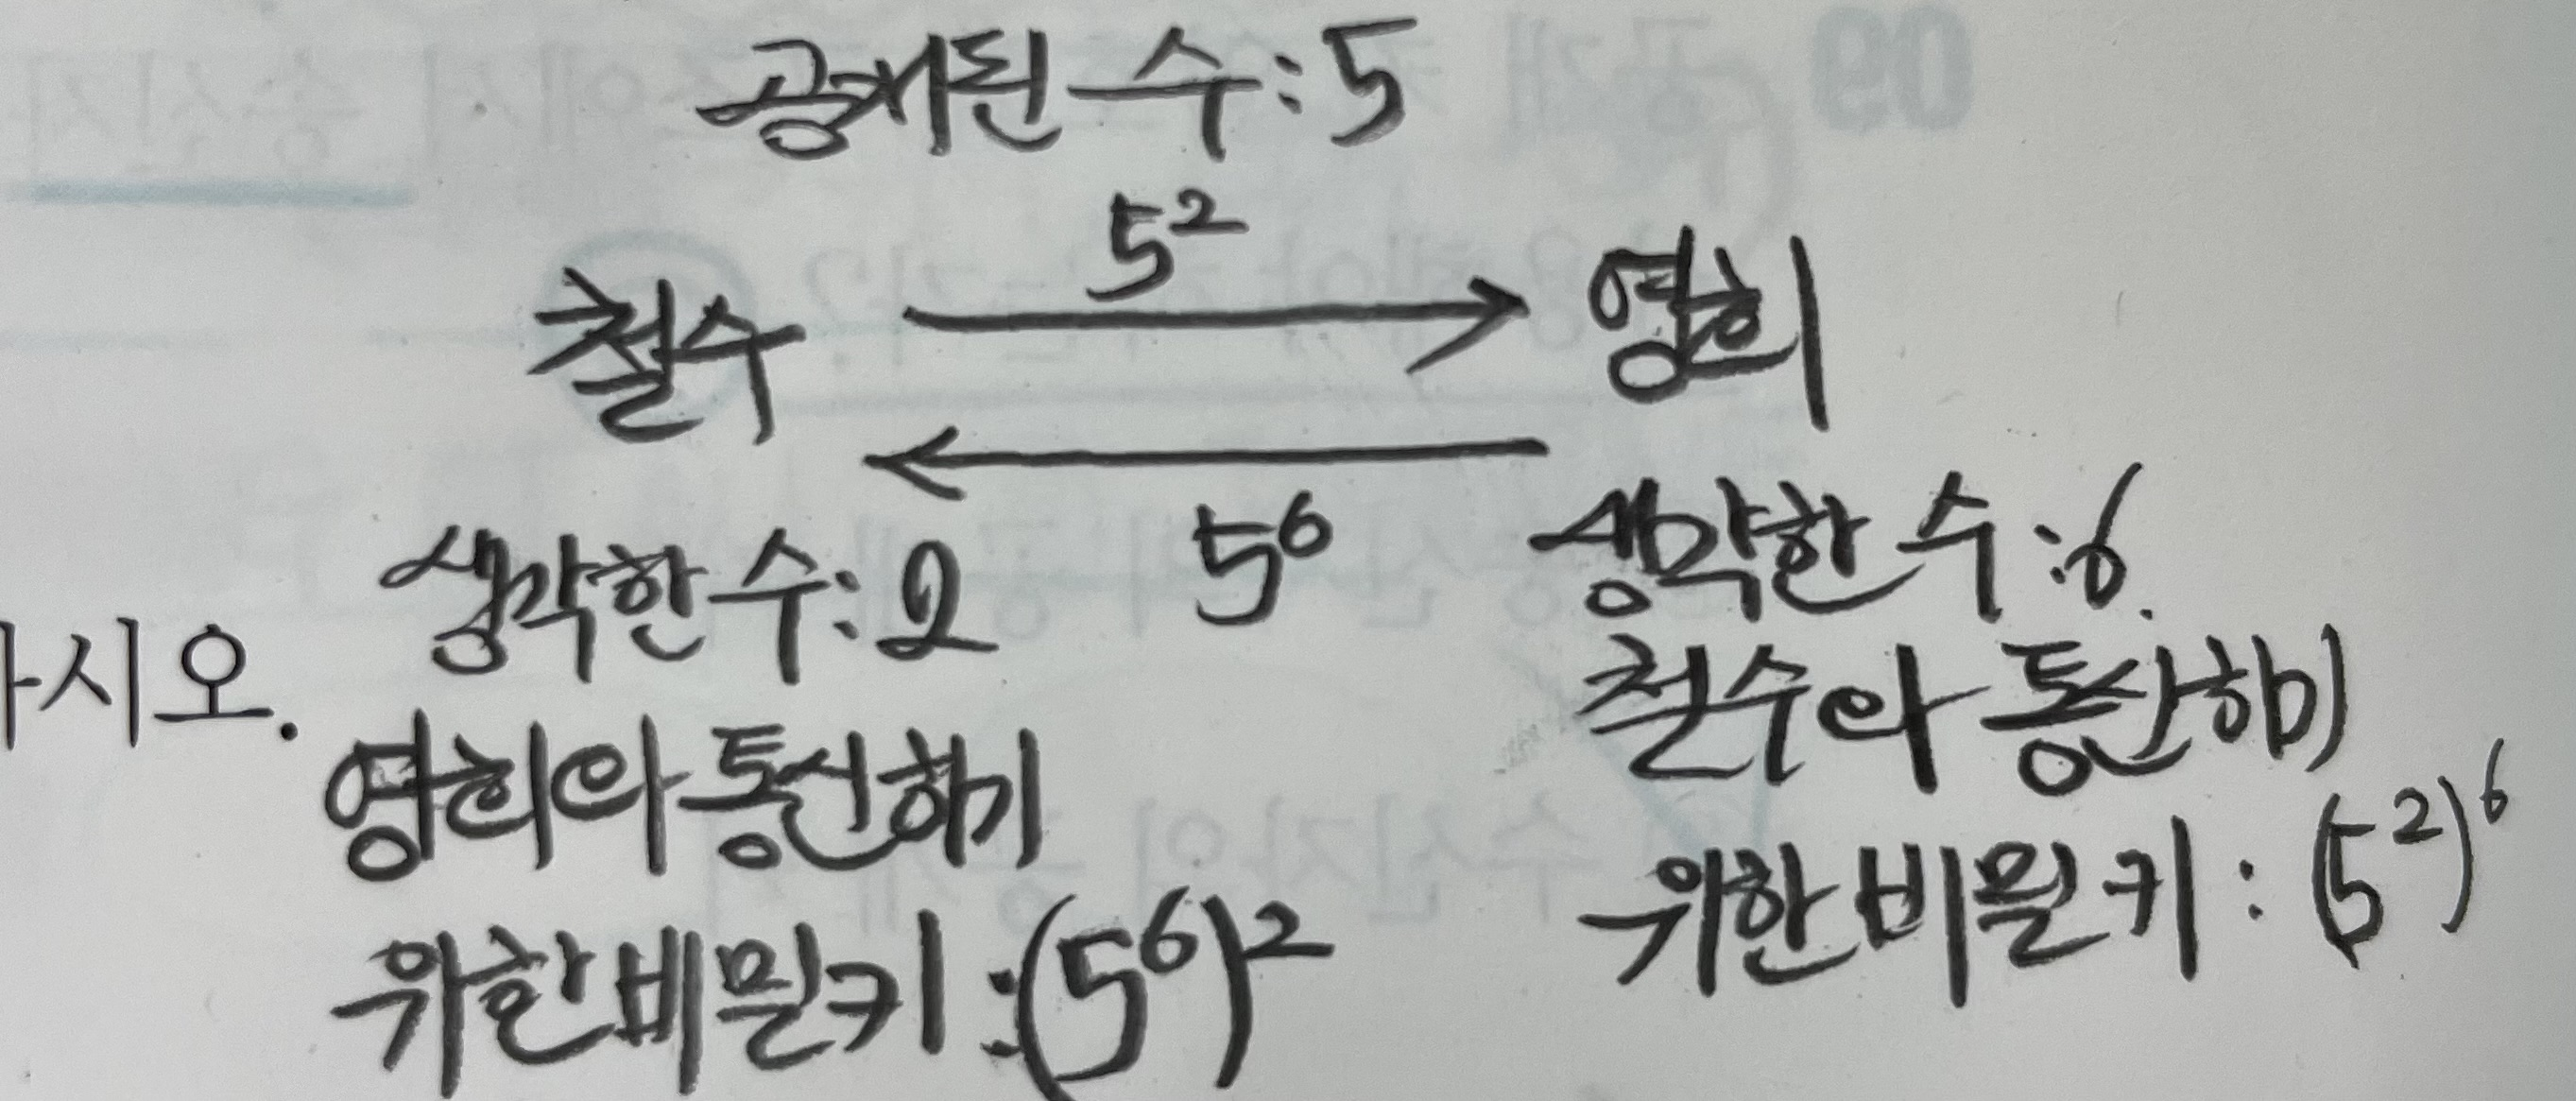 공개된 수: 5
5²
철수 영희
5⁶
생각한 수: 2
생각한 수: 6
영희와 통신하기
위한 비밀키: (5⁶)²
철수와 통신하기
위한 비밀키: (5²)⁶
시오.